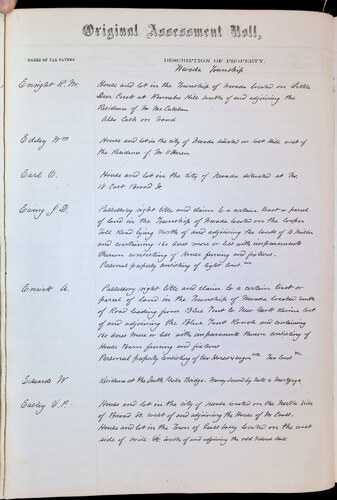 Original Assessment Roll,
NAMES OF TAX PAYERS.
DESCRIPTION OF PROPERTY.
Nevada Township
Enright R. M.
House and lot in the Township of Nevada located on Little
Deer Creek at Hill south of and adjoining the
Residence of Mr
Also Cash on hand
Ediley Wm
House and lot in the city of Nevada situated on Lost Hill west of
the Residence of M
Earl O.
House and lot in the city of Nevada situated at No.
18 East Broad St
Ewing J. D.
Possessory right title and claim to a certain tract or parcel
of land in the Township of Nevada located on the
Toll Road lying North of and adjoining the lands of
and containing 160 acres more or less with improvements
thereon consisting of House fencing and fixtures.
Personal property consisting of
A.
Possessory right title and claim to a certain tract or
parcel of land in the Township of Nevada located south
of Road leading from Blue Tent to New York
of and adjoining the Blue Tent Ranch and containing
160 acres more or less with improvements thereon consisting of
House Barn fencing and fixtures
Personal property consisting of two Horses & wagon
Edwards W
Residence at the South Yuba Bridge. Money Loaned by Note & Mortgage
Easley T. P.
House and lot in the city of Nevada located on the North side
of Broad St. west of and adjoining the House of
House and lot in the Town of located on the west
side of St south of and adjoining the odd Fellows Hall